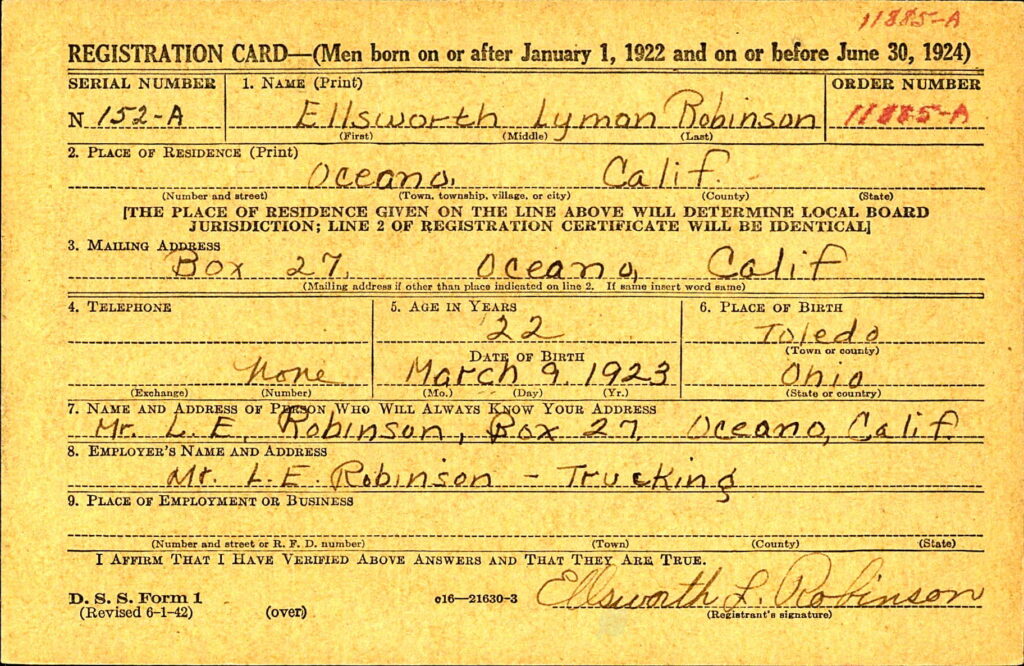 11885-A
REGISTRATION CARD—(Men born on or after January 1, 1922 and on or before June 30, 1924)
SERIAL NUMBER
1. NAME (Print)
ORDER NUMBER
N 152-A
Ellsworth Lyman Robinson
11885-A
(First) (Middle) (Last)
2. PLACE OF RESIDENCE (Print)
Oceano, Calif.
(Number and street) (Town, township, village, or city) (County) (State)
[THE PLACE OF RESIDENCE GIVEN ON THE LINE ABOVE WILL DETERMINE LOCAL BOARD
JURISDICTION; LINE 2 OF REGISTRATION CERTIFICATE WILL BE IDENTICAL]
3. MAILING ADDRESS
Box 27, Oceano, Calif
(Mailing address if other than place indicated on line 2. If same insert word same)
4. TELEPHONE
5. AGE IN YEARS
6. PLACE OF BIRTH
22
Toledo
(Town or county)
DATE OF BIRTH
None
March 9, 1923
Ohio
(Exchange) (Number)
(Mo.) (Day) (Yr.)
(State or country)
7. NAME AND ADDRESS OF PERSON WHO WILL ALWAYS KNOW YOUR ADDRESS
Mr. L. E. Robinson, Box 27, Oceano, Calif.
8. EMPLOYER'S NAME AND ADDRESS
Mr. L. E. Robinson - Trucking
9. PLACE OF EMPLOYMENT OR BUSINESS
(Number and street or R. F. D. number) (Town) (County) (State)
I AFFIRM THAT I HAVE VERIFIED ABOVE ANSWERS AND THAT THEY ARE TRUE.
Ellsworth L. Robinson
D. S. S. Form 1
(Revised 6-1-42) (over)
c16—21630-3
(Registrant's signature)